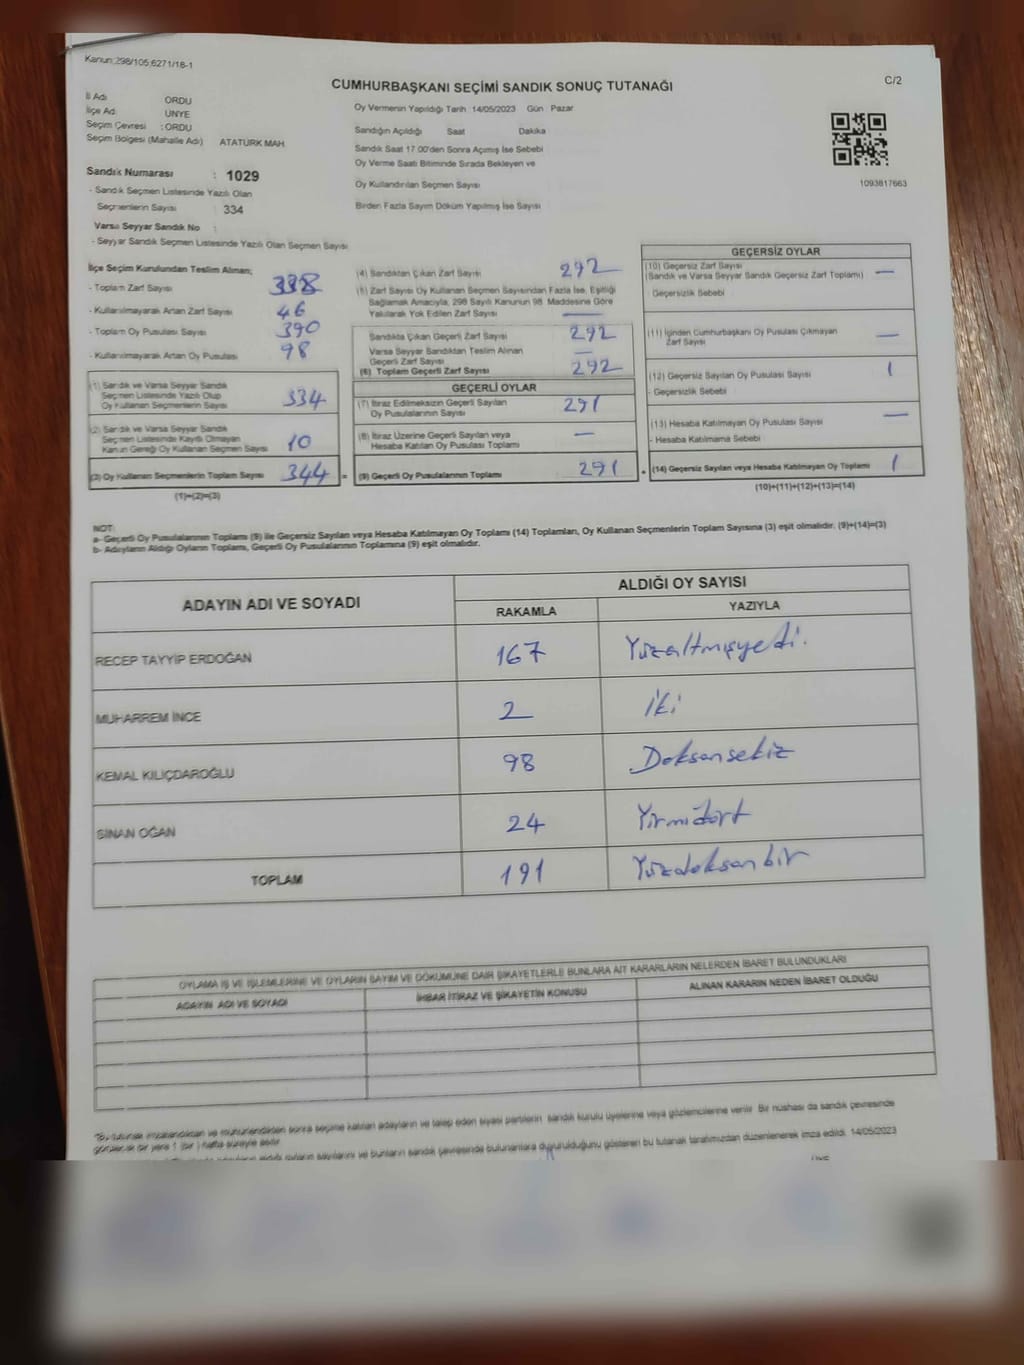 Kanun:298/105;6271/18-1
C/2
CUMHURBAŞKANI SEÇİMİ SANDIK SONUÇ TUTANAĞI
İl Adı ORDU
İlçe Ad. ÜNYE
Seçim Çevresi : ORDU
Seçim Bölgesi (Mahalle Adı) ATATÜRK MAH
Sandık Numarası : 1029
- Sandık Seçmen Listesinde Yazılı Olan
Seçmenlerin Sayısı : 334
Varsa Seyyar Sandık No :
- Seyyar Sandık Seçmen Listesinde Yazılı Olan Seçmen Sayısı
Oy Vermenin Yapıldığı Tarih 14/05/2023 Gün : Pazar
Sandığın Açıldığı Saat Dakika
Sandık Saat 17.00'den Sonra Açımış İse Sebebi
Oy Verme Saati Bitiminde Sırada Bekleyen ve
Oy Kullandırılan Seçmen Sayısı
Birden Fazla Sayım Döküm Yapılmış İse Sayısı
1093817663
İlçe Seçim Kurulundan Teslim Alınan;
- Toplam Zarf Sayısı 338
- Kullanılmayarak Artan Zarf Sayısı 46
- Toplam Oy Pusulası Sayısı 390
- Kullanılmayarak Artan Oy Pusulası 98
(1) Sandık ve Varsa Seyyar Sandık
Seçmen Listesinde Yazılı Olup
Oy Kullanan Seçmenlerin Sayısı 334
(2) Sandık ve Varsa Seyyar Sandık
Seçmen Listesinde Kayıtlı Olmayan
Kanun Gereği Oy Kullanan Seçmen Sayısı 10
(3) Oy Kullanan Seçmenlerin Toplam Sayısı 344 =
(1)+(2)=(3)
(4) Sandıktan Çıkan Zarf Sayısı 292
(5) Zarf Sayısı Oy Kullanan Seçmen Sayısından Fazla İse, Eşitliği
Sağlamak Amacıyla, 298 Sayılı Kanunun 98. Maddesine Göre
Yakılarak Yok Edilen Zarf Sayısı —
Sandıkta Çıkan Geçerli Zarf Sayısı 292
Varsa Seyyar Sandıktan Teslim Alınan
Geçerli Zarf Sayısı —
(6) Toplam Geçerli Zarf Sayısı 292
GEÇERLİ OYLAR
(7) İtiraz Edilmeksizin Geçerli Sayılan
Oy Pusulalarının Sayısı 291
(8) İtiraz Üzerine Geçerli Sayılan veya
Hesaba Katılan Oy Pusulası Toplamı —
(9) Geçerli Oy Pusulalarının Toplamı 291 +
GEÇERSİZ OYLAR
(10) Geçersiz Zarf Sayısı
(Sandık ve Varsa Seyyar Sandık Geçersiz Zarf Toplamı) —
- Geçersizlik Sebebi
(11) İçinden Cumhurbaşkanı Oy Pusulası Çıkmayan
Zarf Sayısı —
(12) Geçersiz Sayılan Oy Pusulası Sayısı 1
- Geçersizlik Sebebi
(13) Hesaba Katılmayan Oy Pusulası Sayısı —
- Hesaba Katılmama Sebebi
(14) Geçersiz Sayılan veya Hesaba Katılmayan Oy Toplamı 1
(10)+(11)+(12)+(13)=(14)
NOT:
a- Geçerli Oy Pusulalarının Toplamı (9) ile Geçersiz Sayılan veya Hesaba Katılmayan Oy Toplamı (14) Toplamları, Oy Kullanan Seçmenlerin Toplam Sayısına (3) eşit olmalıdır. (9)+(14)=(3)
b- Adayların Aldığı Oyların Toplamı, Geçerli Oy Pusulalarının Toplamına (9) eşit olmalıdır.
ADAYIN ADI VE SOYADI ALDIĞI OY SAYISI
RAKAMLA YAZIYLA
RECEP TAYYİP ERDOĞAN 167 Yüzaltmışyedi.
MUHARREM İNCE 2 İki
KEMAL KILIÇDAROĞLU 98 Doksansekiz
SİNAN OĞAN 24 Yirmidört
TOPLAM 191 Yüzdoksanbir
OYLAMA İŞ VE İŞLEMLERİNE VE OYLARIN SAYIM VE DÖKÜMÜNE DAİR ŞİKAYETLERLE BUNLARA AİT KARARLARIN NELERDEN İBARET BULUNDUKLARI
ADAYIN ADI VE SOYADI İHBAR İTİRAZ VE ŞİKAYETİN KONUSU ALINAN KARARIN NEDEN İBARET OLDUĞU
İşbu tutanak imzalandıktan ve mühürlendikten sonra seçime katılan adayların ve talep eden siyasi partilerin sandık kurulu üyelerine veya gözlemcilerine verilir. Bir nüshası da sandık çevresinde
görülecek bir yere 1 (bir) hafta süreyle asılır.
oyların sayılarını ve bunların sandık çevresinde bulunanlara duyurulduğunu gösteren bu tutanak tarafımızdan düzenlenerek imza edildi. 14/05/2023
ÜNYE